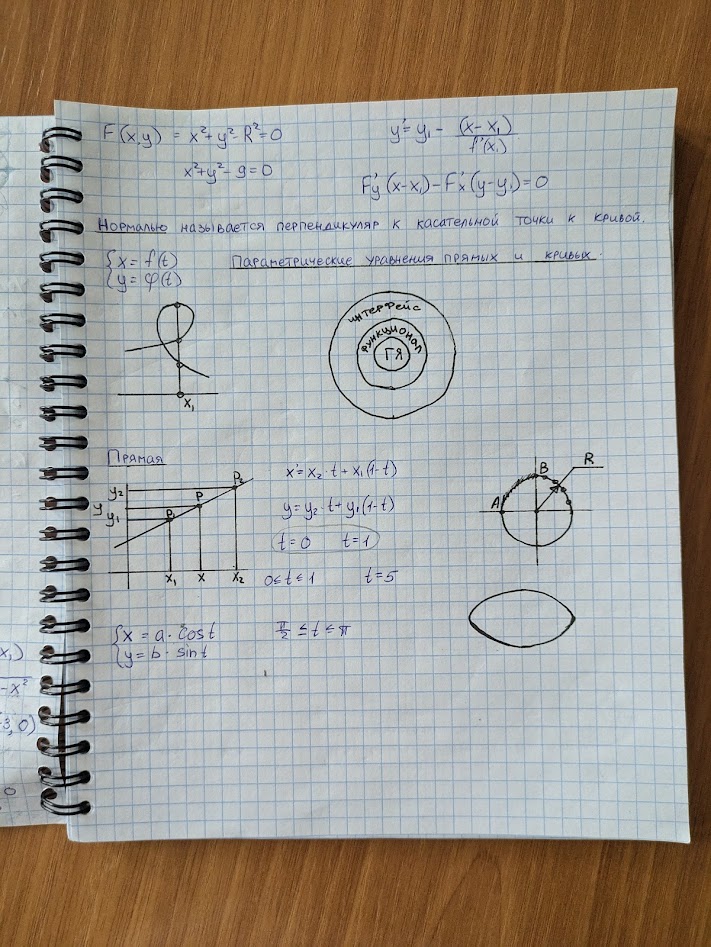 F(x,y) = x²+y²-R²=0
y'= y₁ - (x-x₁)/f'(x₁)
x²+y²-9=0
F'y (x-x₁)-F'x (y-y₁)=0
Нормалью называется перпендикуляр к касательной точки к кривой.
{x=f(t)
{y=φ(t)
Параметрические уравнения прямых и кривых.
интерфейс
функционал
ГЯ
x₁
Прямая
y₂
y
y₁
P₁
P
P₂
x₁ x x₂
x'= x₂·t+x₁(1-t)
y=y₂·t+y₁(1-t)
t=0 t=1
0≤t≤1 t=5
A
B
R
{x = a·cost
{y= b· sint
π/2 ≤t ≤π
x₁)
-x²
-3,0)
0